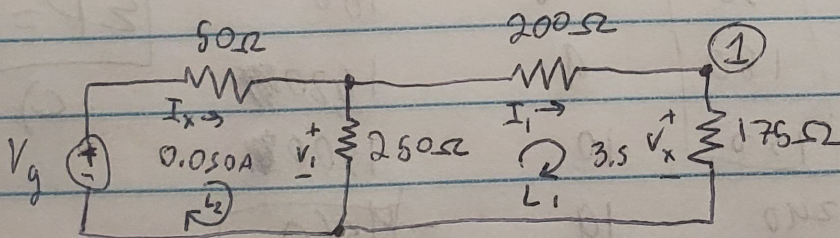 50Ω 200Ω ①
Vg + - Ix→ 0.050A V1 + - 250Ω I1→ 3.5 Vx + - 175Ω
L2 L1